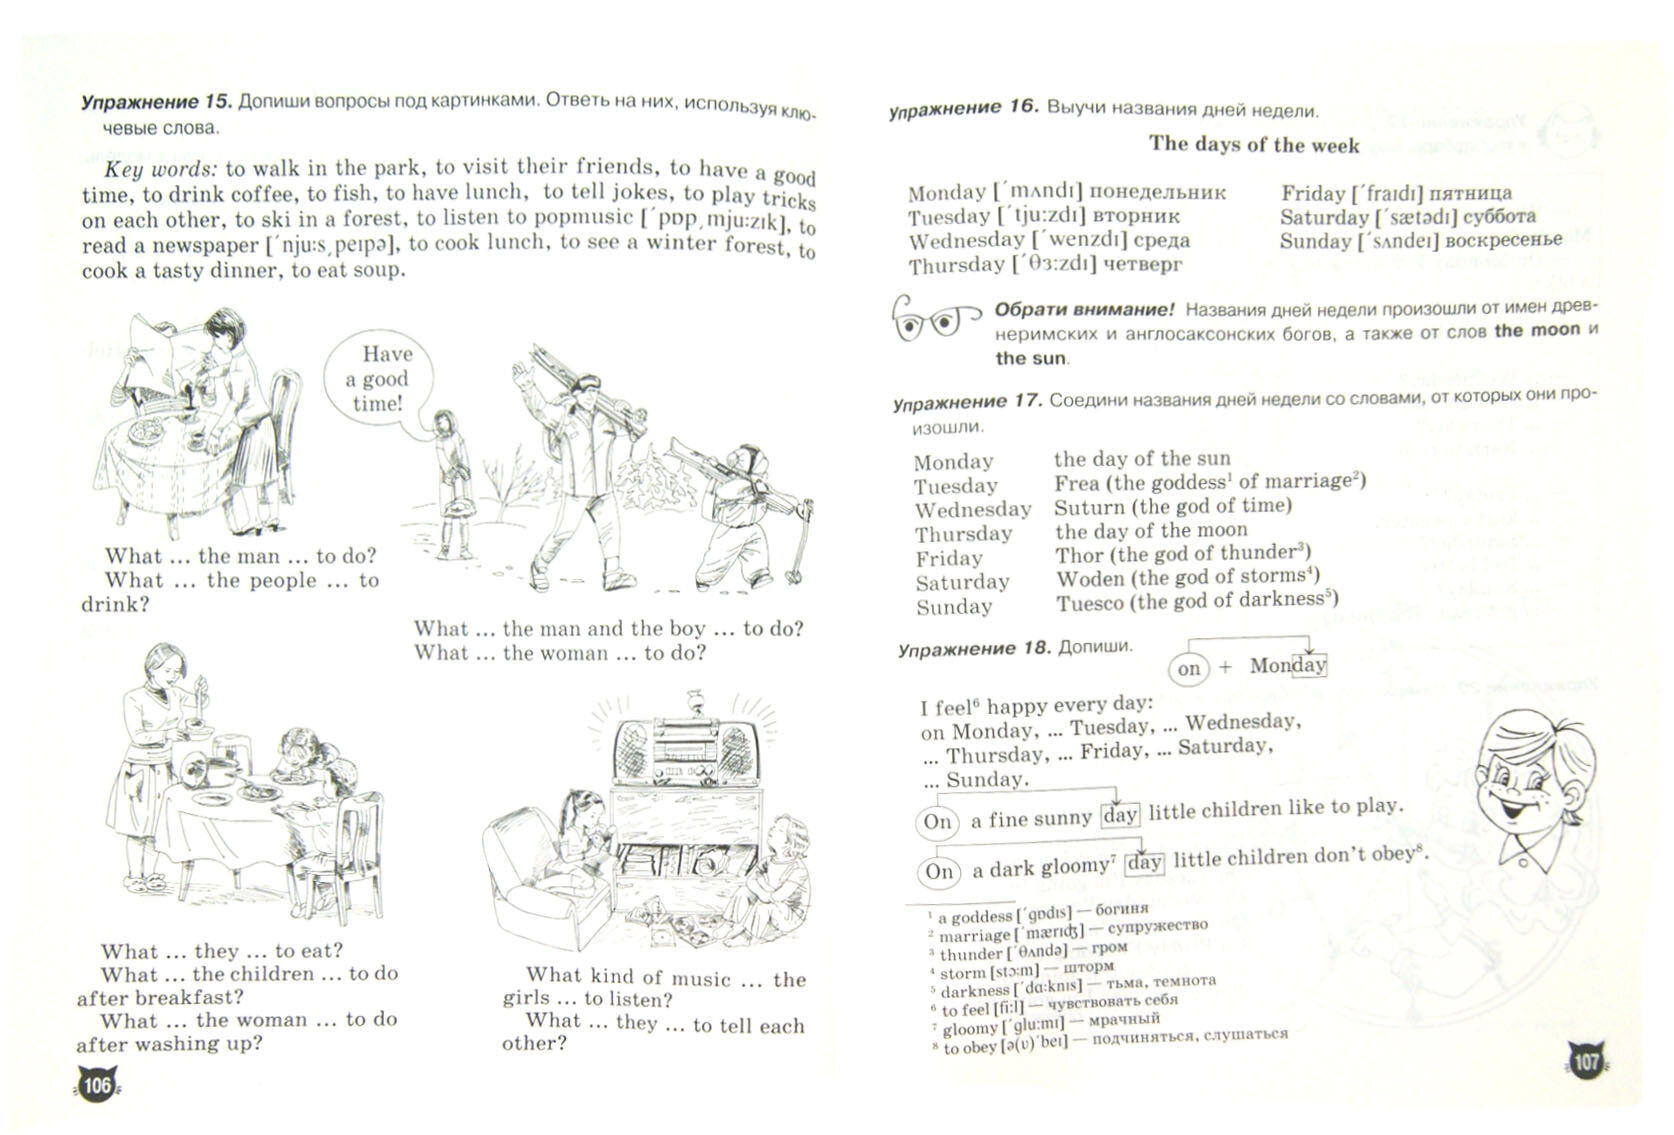 Упражнение 15. Допиши вопросы под картинками. Ответь на них, используя клю-
чевые слова.
Key words: to walk in the park, to visit their friends, to have a good
time, to drink coffee, to fish, to have lunch, to tell jokes, to play tricks
on each other, to ski in a forest, to listen to popmusic [ˊpɒpˌmju:zɪk], to
read a newspaper [ˊnju:sˌpeɪpə], to cook lunch, to see a winter forest, to
cook a tasty dinner, to eat soup.
Have
a good
time!
What ... the man ... to do?
What ... the people ... to
drink?
What ... the man and the boy ... to do?
What ... the woman ... to do?
What ... they ... to eat?
What ... the children ... to do
after breakfast?
What ... the woman ... to do
after washing up?
What kind of music ... the
girls ... to listen?
What ... they ... to tell each
other?
106
Упражнение 16. Выучи названия дней недели.
The days of the week
Monday [ˊmʌndɪ] понедельник
Tuesday [ˊtju:zdɪ] вторник
Wednesday [ˊwenzdɪ] среда
Thursday [ˊθɜ:zdɪ] четверг
Friday [ˊfraɪdɪ] пятница
Saturday [ˊsætədɪ] суббота
Sunday [ˊsʌndeɪ] воскресенье
Обрати внимание! Названия дней недели произошли от имен древ-
неримских и англосаксонских богов, а также от слов the moon и
the sun.
Упражнение 17. Соедини названия дней недели со словами, от которых они про-
изошли.
Monday the day of the sun
Tuesday Frea (the goddess¹ of marriage²)
Wednesday Suturn (the god of time)
Thursday the day of the moon
Friday Thor (the god of thunder³)
Saturday Woden (the god of storms⁴)
Sunday Tuesco (the god of darkness⁵)
Упражнение 18. Допиши.
on + Monday
I feel⁶ happy every day:
on Monday, ... Tuesday, ... Wednesday,
... Thursday, ... Friday, ... Saturday,
... Sunday.
On a fine sunny day little children like to play.
On a dark gloomy⁷ day little children don't obey⁸.
¹ a goddess [ˊgɒdɪs] — богиня
² marriage [ˊmærɪʤ] — супружество
³ thunder [ˊθʌndə] — гром
⁴ storm [stɔ:m] — шторм
⁵ darkness [ˊdɑ:knɪs] — тьма, темнота
⁶ to feel [fi:l] — чувствовать себя
⁷ gloomy [ˊglu:mɪ] — мрачный
⁸ to obey [ə(ʊ)ˊbeɪ] — подчиняться, слушаться
107